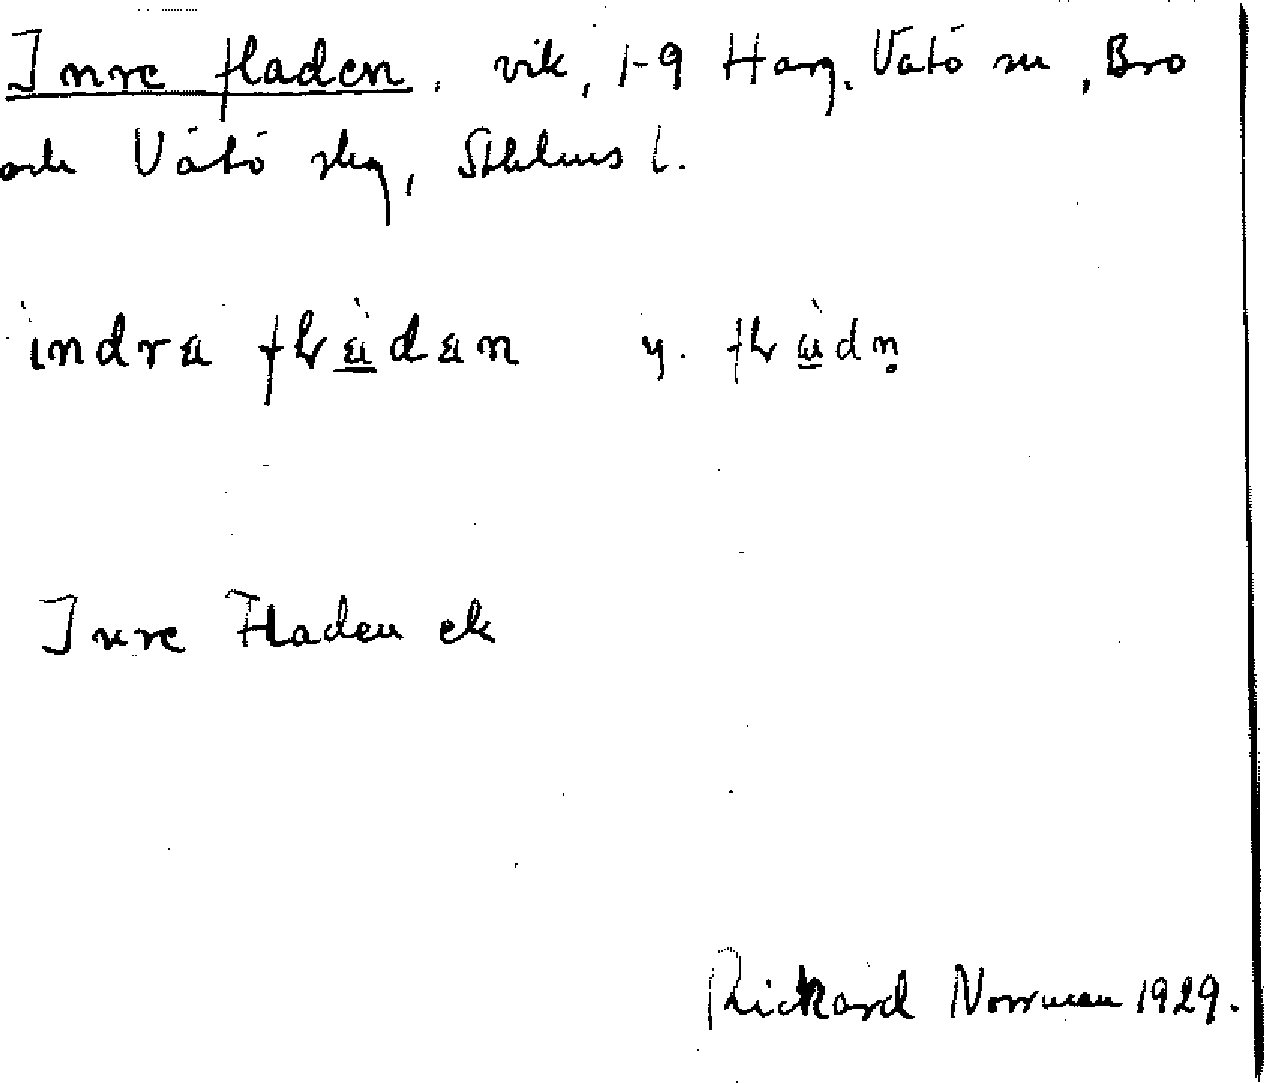 Inre fladen, vik, 1-9 Harg. Vätö sn, Bro
och Vätö skg, Sthlms l.
indra flàdan y. flàdn̥
Inre Fladen ek
Rickard Norrman 1929.